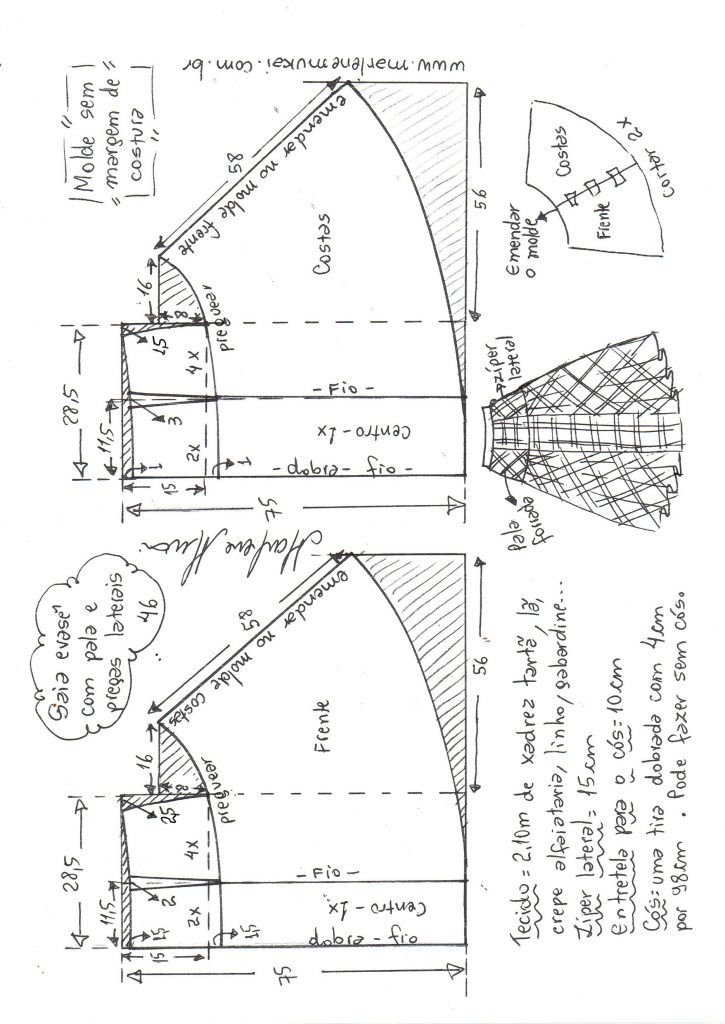 Saia evasê
com pala e
pregas laterais
46
"Molde sem
margem de
costura"
www.marlenemukai.com.br
Marlene Mukai
28,5
11,5
15
1,5
2
2,5
2x
4x
1,5
8
16
preguear
58
emendar no molde costas
Frente
Fio
Centro - 1x
dobra - fio
75
56
28,5
11,5
15
1
3
1,5
2x
4x
1
8
16
preguear
58
emendar no molde frente
Costas
- Fio -
Centro - 1x
- dobra - fio -
75
56
Tecido = 2,10m de xadrez tartã, lã,
crepe alfaiataria, linho, gabardine...
Ziper lateral = 15cm
Entretela para o cós = 10cm
Cós = uma tira dobrada com 4cm
por 98cm. Pode fazer sem cós.
pala
forrada
zíper
lateral
Emendar
o molde
Frente
Costas
Cortar 2x